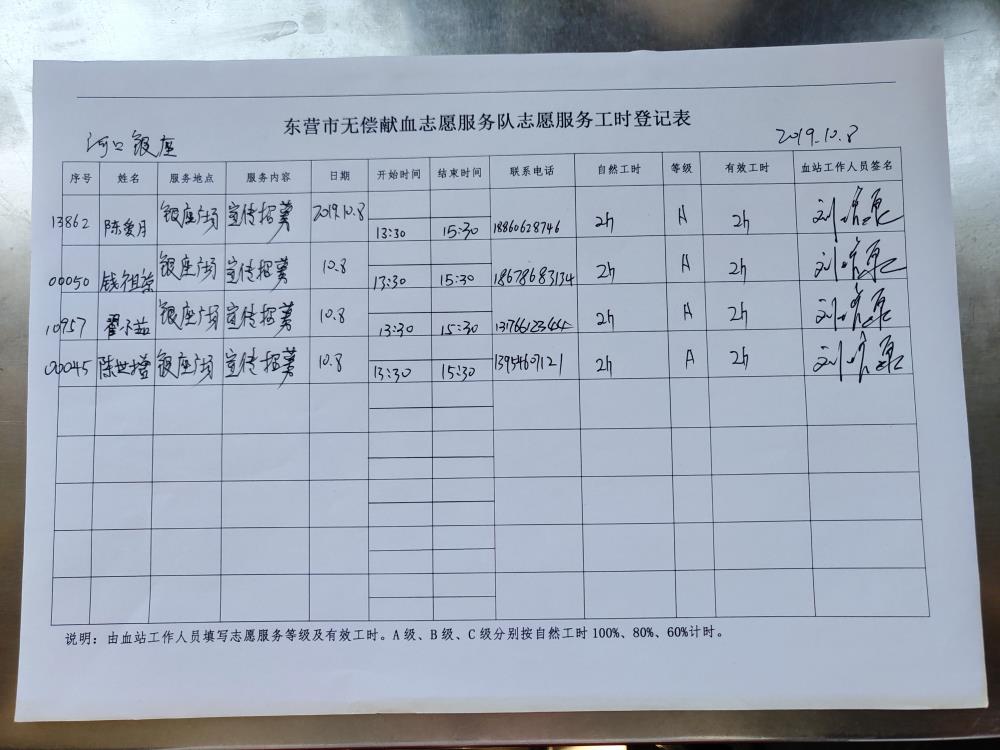 东营市无偿献血志愿服务队志愿服务工时登记表
河口银座 2019.10.8
序号 姓名 服务地点 服务内容 日期 开始时间 结束时间 联系电话 自然工时 等级 有效工时 血站工作人员签名
13862 陈爱月 银座广场 宣传招募 2019.10.8 13:30 15:30 18860628746 2h A 2h
00050 钱祖荣 银座广场 宣传招募 10.8 13:30 15:30 18678683134 2h A 2h
10957 银座广场 宣传招募 10.8 13:30 15:30 2h A 2h
00045 陈世增 银座广场 宣传招募 10.8 13:30 15:30 13954607121 2h A 2h
说明：由血站工作人员填写志愿服务等级及有效工时。A级、B级、C级分别按自然工时100%、80%、60%计时。